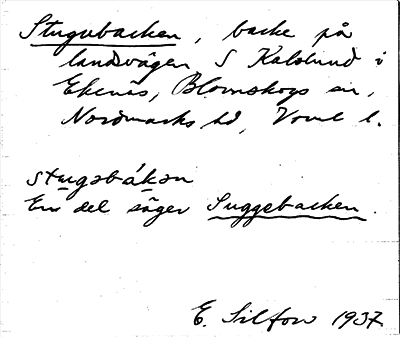 Stugubacken, backe på
landsvägen S Kalslund i
Ekenäs, Blomskogs sn,
Nordmarks hd, Vrml l.
stugɘbákɘn
En del säger Suggebacken.
E. Silfow 1937